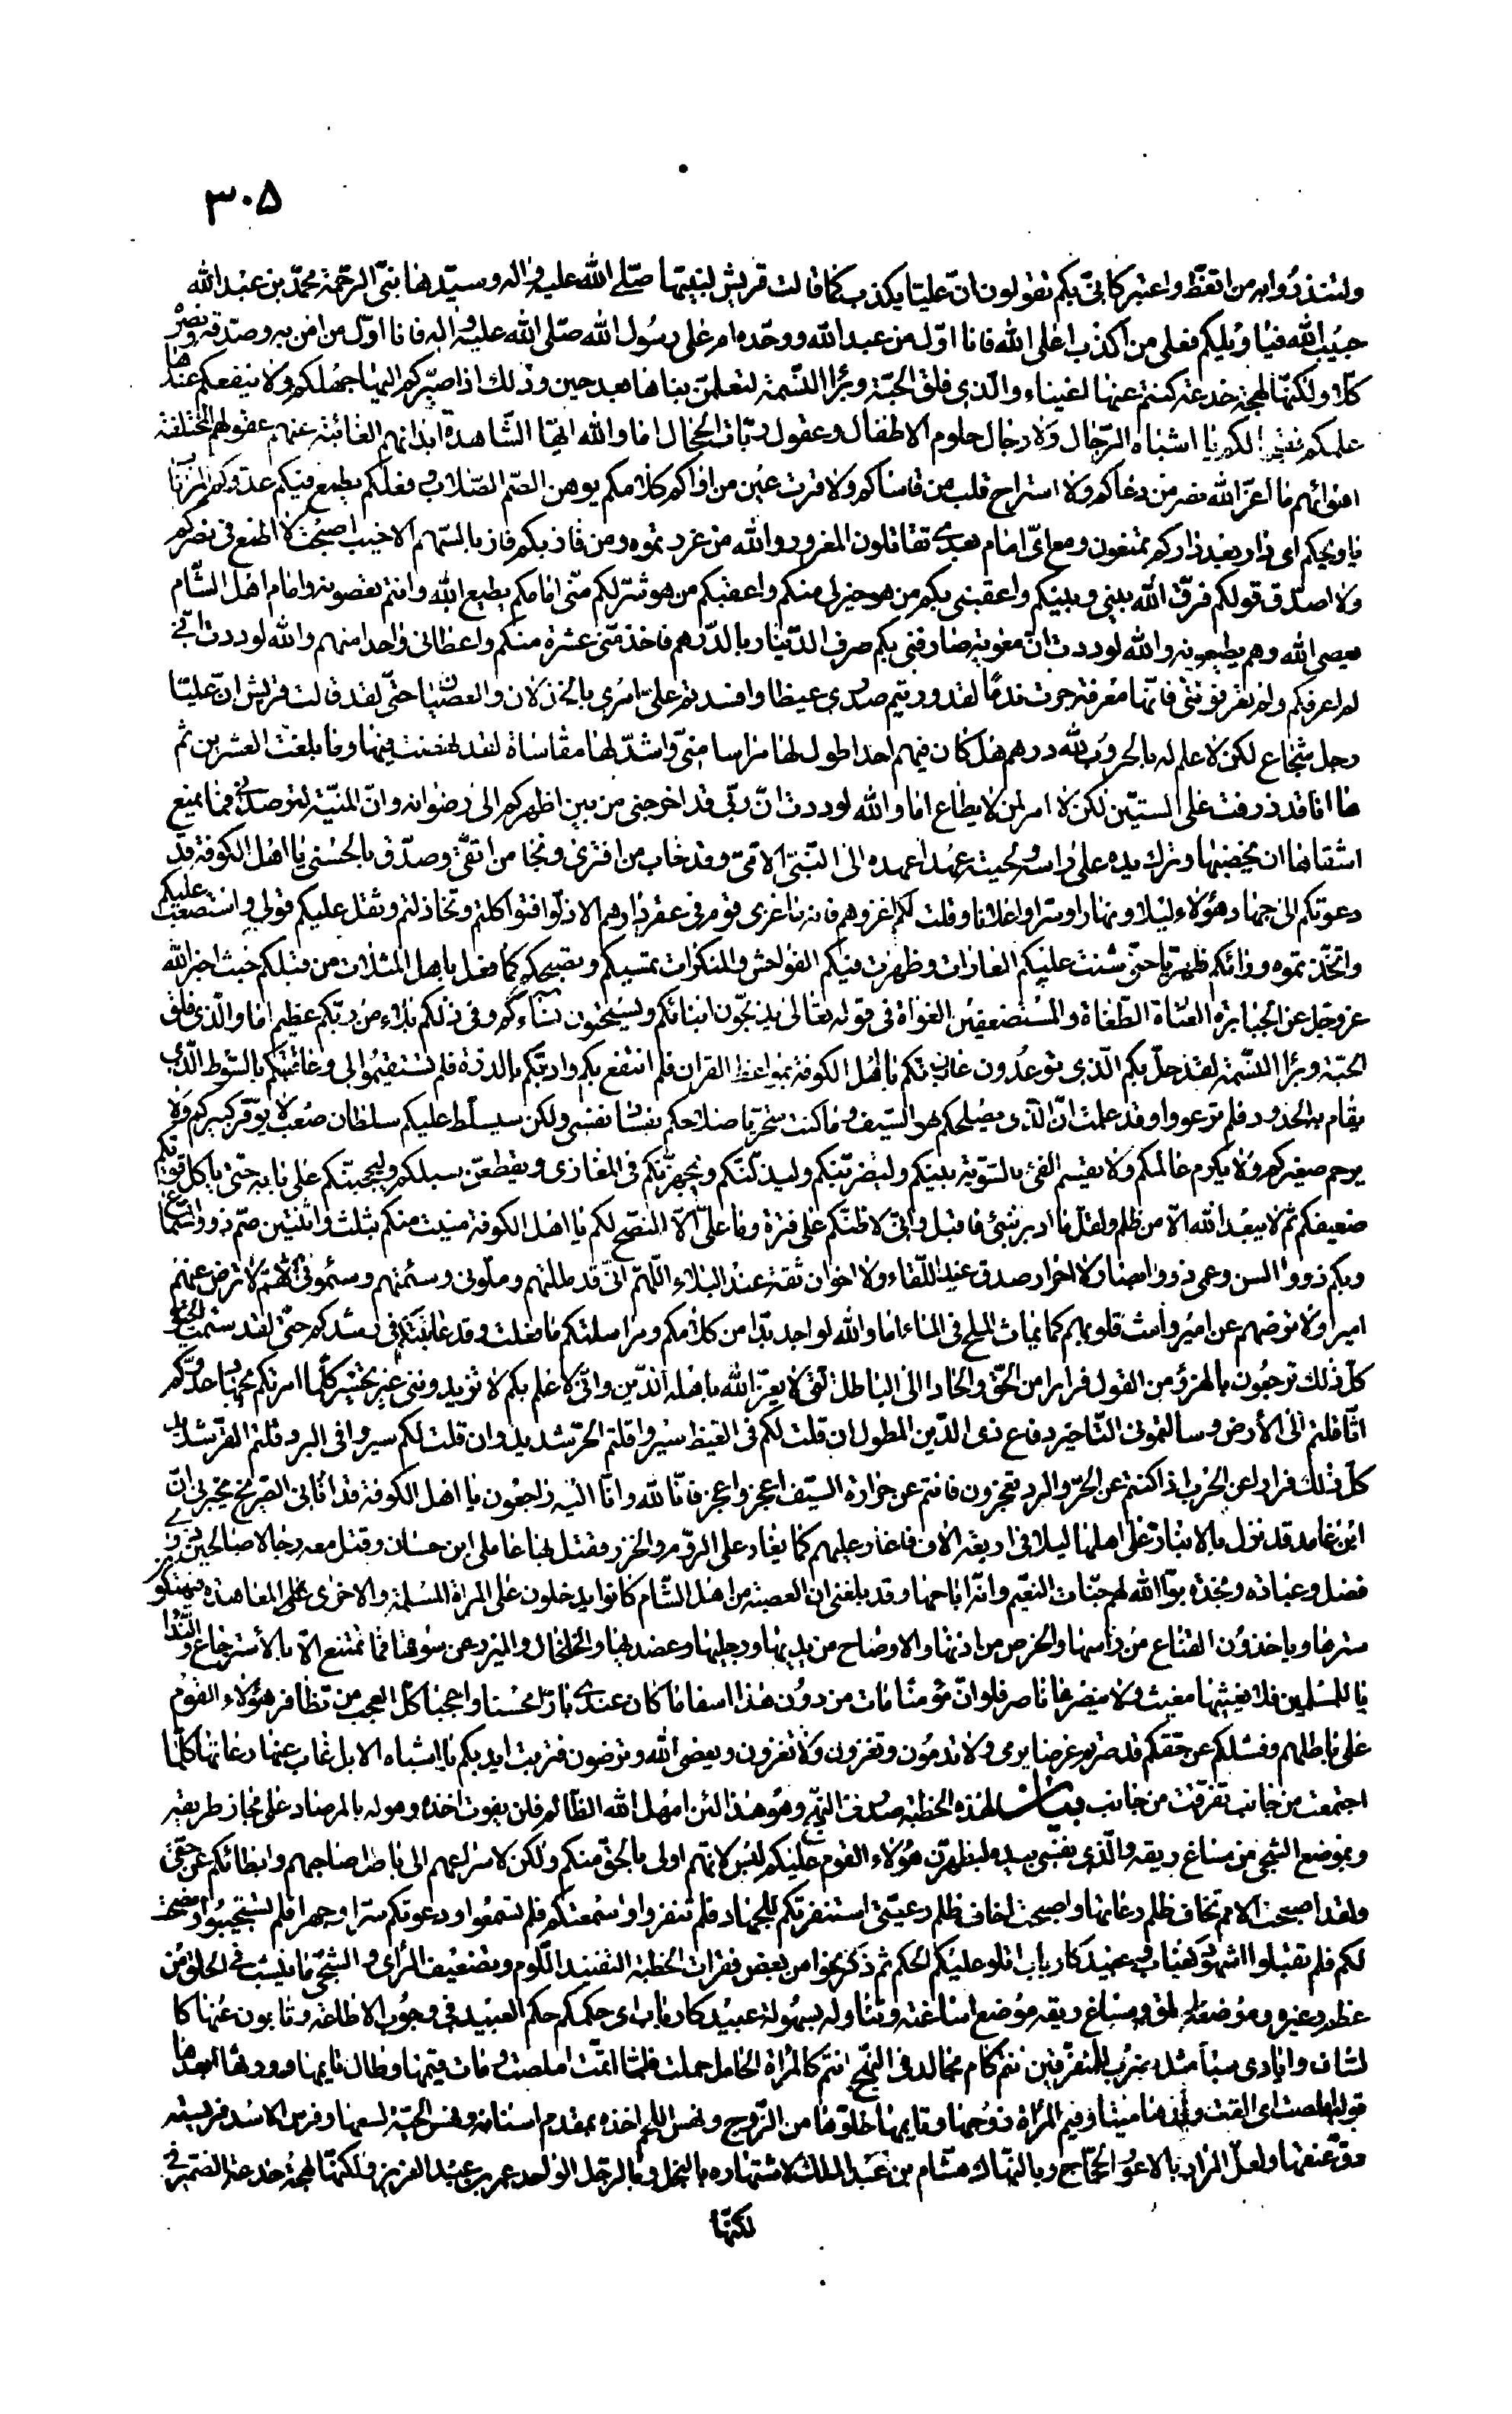 ٣٠۵
ولتنذروا به من اتّعظ واعتبر كانّى بكم تقولون انّ عليّا يكذب كما قالت قريش لنبيّها صلّى الله عليه واله وسيّدها نبىّ الرّحمة محمّد بن عبد الله
حبيب الله فيا ويلكم فعلى من اكذب اعلى الله فانا اوّل من عبد الله ووحّده ام على رسول الله صلّى الله عليه واله فانا اوّل من امن به وصدّقه ونصره
كلّا ولكنّها لهجة خدعة كنتم عنها اغبياء والّذى فلق الحبّة وبرا النّسمة لتعلمنّ نباها بعد حين وذلك اذا صيّركم اليها جهلكم ولا ينفعكم عندها
علمكم فقبحا لكم يا اشباه الرّجال ولا رجال حلوم الاطفال وعقول ربّات الحجال اما والله ايّها الشّاهدة ابدانهم الغائبة عنهم عقولهم المختلفة
اهوائهم ما اعزّ الله نصر من دعاكم ولا استراح قلب من قاساكم ولا قرت عين من اواكم كلامكم يوهن الصّم الصّلاب وفعلكم يطمع فيكم عدوّكم المرتاب
يا ويحكم اى دار بعد داركم تمنعون ومع اىّ امام بعدى تقاتلون المغرور والله من غررتموه ومن فاز بكم فاز بالسّهم الاخيب اصبحت لا اطمع فى نصركم
ولا اصدّق قولكم فرّق الله بينى وبينكم واعقبنى بكم من هو خير لى منكم واعقبكم من هو شرّ لكم منّى امامكم يطيع الله وانتم تعصونه وامام اهل الشّام
يعصى الله وهم يطيعونه والله لوددت انّ معوية صارفنى بكم صرف الدّينار بالدّرهم فاخذ منّى عشرة منكم واعطانى واحدا منهم والله لوددت انّى
لم اعرفكم ولم تعرفونى فانّها معرفة جرت ندما لقد وريتم صدرى غيظا وافسدتم علىّ امرى بالخذلان والعصيان حتّى لقد قالت قريش انّ عليّا
رجل شجاع لكن لا علم له بالحروب لله درهم هل كان فيهم احد اطول لها مراسا منّى واشدّ لها مقاساة لقد نهضت فيها وما بلغت العشرين ثم
ها انا قد ذرفت على الستّين لكن لا امر لمن لا يطاع اما والله لوددت انّ ربّى قد اخرجنى من بين اظهركم الى رضوانه وانّ المنيّة لترصدنى فما يمنع
اشقاها ان يخضبها وترك يده على راسه ولحيته عهدا عهده الىّ النّبىّ الامّى وقد خاب من افترى ونجا من اتقى وصدّق بالحسنى يا اهل الكوفة قد
دعوتكم الى جهاد هؤلاء ليلا ونهارا وسرّا واعلانا وقلت لكم اغزوهم فانه ما غزى قوم فى عقر دارهم الا ذلّوا فتواكلتم وتخاذلتم وثقل عليكم قولى واستصعب عليكم
واتّخذتموه ورائكم ظهريا حتّى شنت عليكم الغارات وظهرت فيكم الفواحش والمنكرات تمسيكم وتصبحكم كما فعل باهل المثلات من قبلكم حيث اخبر الله
عزّ وجلّ عن الجبابرة العتاة الطّغاة والمستضعفين الغواة فى قوله تعالى يذبّحون ابنائكم ويستحيون نساءكم وفى ذلكم بلاء من ربّكم عظيم اما والّذى فلق
الحبّة وبرا النّسمة لقد حلّ بكم الّذى توعدون عاتبتكم يا اهل الكوفة بمواعظ القران فلم انتفع بكم وادبتكم بالدّرّة فلم تستقيموا لى وعاقبتكم بالسّوط الّذى
يقام به الحدود فلم ترعووا وقد علمت انّ الّذى يصلحكم هو السّيف وما كنت متحرّيا صلاحكم بفساد نفسى ولكن سيسلّط عليكم سلطان صعب لا يوقّر كبيركم ولا
يرحم صغيركم ولا يكرم عالمكم ولا يقسم الفئ بالسّويّة بينكم وليضربنّكم وليذلّنّكم ويجهزنّكم فى المغازى ويقطعنّ سبلكم وليحجبنّكم على بابه حتّى ياكل قويّكم
ضعيفكم ثم لا يبعد الله الّا من ظلم ولقلّ ما ادبر شئ فاقبل وانّى لاظنّكم على فترة وما علىّ الّا النّصح لكم يا اهل الكوفة منيت منكم بثلث واثنتين صمّ ذووا اسماع
وبكم ذووا السن وعمى ذووا ابصار لا احرار صدق عند اللّقاء ولا اخوان ثقة عند البلاء اللّهمّ انّى قد مللتهم وملّونى وسئمتهم وسئمونى اللّهمّ لا ترض عنهم
اميرا ولا ترضهم عن امير وامث قلوبهم كما يماث الملح فى الماء اما والله لو اجد بدّا من كلامكم ومراسلتكم ما فعلت وقد عاتبتكم فى رشدكم حتّى لقد سئمت الحيوة
كلّ ذلك ترجعون بالهزؤ من القول فرارا من الحقّ والحادا الى الباطل الّذى لا يعزّ الله باهله الدّين وانّى لاعلم بكم لا تزيدوننى غير تخسير كلّما امرتكم بجهاد عدوّكم
اثّاقلتم الى الأرض وسالتمونى التّاخير دفاع ذى الدّين المطول ان قلت لكم فى القيظ سيروا قلتم الحرّ شديد وان قلت لكم سيروا فى البرد قلتم القرّ شديد
كلّ ذلك فرارا عن الحرب اذا كنتم عن الحرّ والبرد تعجزون فانتم عن حرارة السّيف اعجز واعجز فانّا لله وانّا اليه راجعون يا اهل الكوفة قد اتانى الصّريخ يخبرنى انّ
ابن غامد قد نزل بالانبار على اهلها ليلا فى اربعة الاف فاغار عليهم كما يغار على الرّوم والخزر فقتل بها عاملى ابن حسّان وقتل معه رجالا صالحين ذوى
فضل وعبادة ونجدة بوّا الله لهم جنّات النّعيم وانّه اباحها وقد بلغنى ان العصبة من اهل الشّام كانوا يدخلون على المراة المسلمة والاخرى المعاهدة فيهتكون
سترها وياخذون القناع من راسها والخرص من اذنها والاوضاح من يديها ورجليها وعضديها والخلخال والميزر عن سوقها فما تمتنع الّا بالأسترجاع والنّداء
يا للمسلمين فلا يغيثها مغيث ولا ينصرها ناصر فلو انّ مؤمنا مات من دون هذا اسفا ما كان عندى بارّا محسنا واعجبا كلّ العجب من تظافر هؤلاء القوم
على باطلهم وفشلكم عن حقّكم قد صرتم غرضا يرمى ولا ترمون وتغزون ولا تغزون ويعصى الله وترضون فتربت ايديكم يا اشباه الابل غاب عنها رعاتها كلّما
اجتمعت من جانب تفرّقت من جانب بيان لهذه الخطبة صدر فى النّهج وهو هذا لئن امهل الله الظّالم فلن يفوت اخذه وهو له بالمرصاد على مجاز طريقه
وبموضع الشّجى من مساغ ريقه والّذى نفسى بيده ليظهرنّ هؤلاء القوم عليكم ليس لانهم اولى بالحقّ منكم ولكن لاسراعهم الى باطل صاحبهم وابطائكم عن حقّى
ولقد اصبحت الامم تخاف ظلم رعاتها واصبحت اخاف ظلم رعيّتى استنفرتكم للجهاد فلم تنفروا واسمعتكم فلم تسمعوا ودعوتكم سرّا وجهرا فلم تستجيبوا ونصحت
لكم فلم تقبلوا اشهود كغيّاب وعبيد كارباب اتلو عليكم الحكم ثم ذكر نحوا من بعض فقرات الخطبة التفنيد اللّوم وتضعيف الرأى والشّجى ما ينشب فى الحلق من
عظم وغيره وموضعه الحلق ومساغ ريقه موضع اساغته وتناوله بسهولة عبيد كارباب اى حكمكم حكم العبيد فى وجوب الاطاعة وتابون عنها كا
لسّادات وايادى سبا مثل يضرب للمتفرّقين انتم كام مجالد فى النّهج انتم كالمراة الحامل حملت فلمّا اتمّت املصت ومات قيّمها وطال تايمها وورثها ابعدها
قوله املصت اى القت ولدها ميتا وقيم المراة زوجها وتايمها خلوّها من الزّوج ونهس اللحم اخذه بمقدم اسنانه ونهس الحيّة لسعها وفرس الاسد فريسته
دقّ عنقها ولعلّ المراد بالاعور الحجّاج وبالنهّاس هشام بن عبد الملك لاشتهاره بالبخل وبالرّجل الواحد عمر بن عبد العزيز ولكنّها لهجة خدعة الضّمير فى
لكنّها